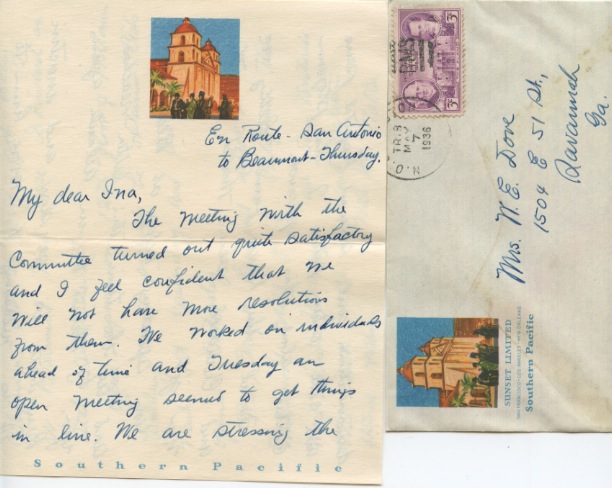 En Route - San Antonio
to Beaumont - Thursday.
My dear Ina,
The meeting with the
Committee turned out quite satisfactory
and I feel confident that we
will not have more resolutions
from them. We worked on individuals
ahead of time and Tuesday an
open meeting seemed to get things
in line. We are stressing the
Southern Pacific
3¢
3¢
TR.8
MAY
7
1936
R.M.S.
Mrs. W. E. Dove
1504 E 51 St.,
Savannah
Ga.
SUNSET LIMITED
Southern Pacific